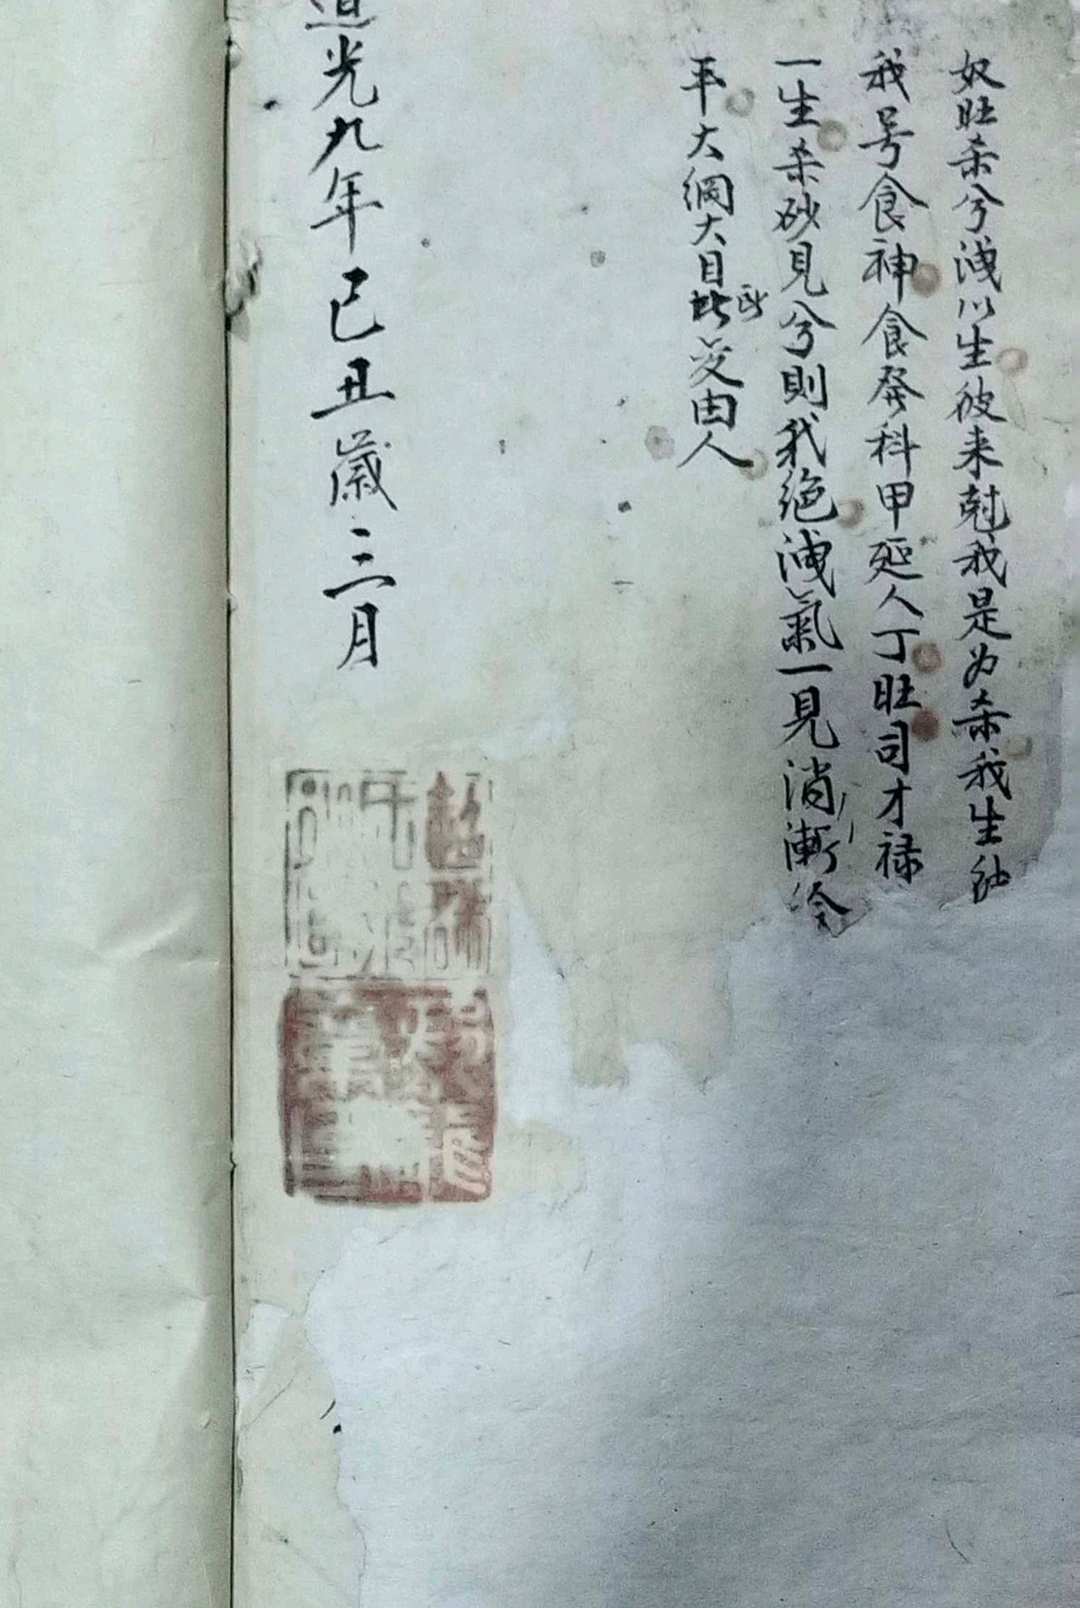 奴旺杀兮洩以生彼来尅我是为杀我生
我号食神食發科甲延人丁旺司才禄
一生杀砂見兮則我絶洩氣一見消漸
平大綱大目受由人
道光九年己丑歲三月